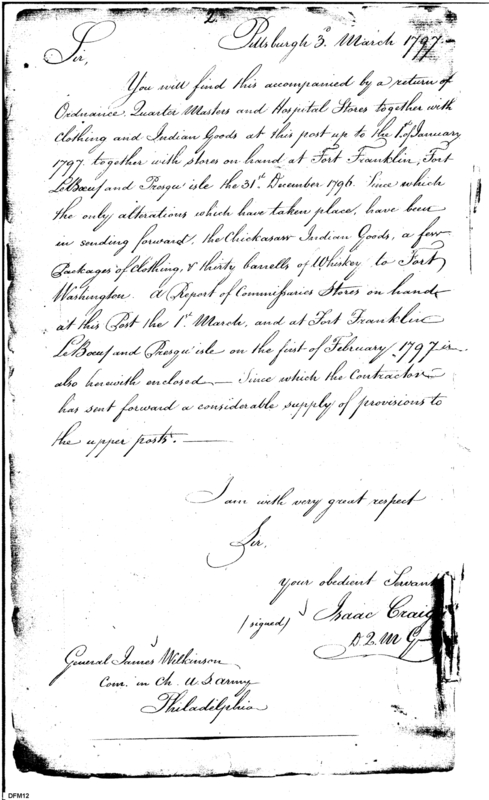 2.
Pittsburgh 3d. March 1797.
Sir,
You will find this accompanied by a return of
Ordnance, Quarter Masters and Hospital Stores together with
Clothing and Indian Goods at this post up to the 1st. of January
1797. together with stores on hand at Fort Franklin, Fort
LeBœuf and Presqu'isle the 31st. December 1796. Since which
the only alterations which have taken place, have been
in sending forward, the Chickasaw Indian Goods, a few
Packages of Clothing, & thirty barrells of Whiskey to Fort
Washington. A Report of Commissaries Stores on hand
at this Post the 1st. March, and at Fort Franklin
LeBœuf and Presqu'isle on the first of February 1797 is
also herewith enclosed — Since which the Contractor
has sent forward a considerable supply of provisions to
the upper posts. —
I am with very great respect
Sir,
your obedient Servant
(signed) Isaac Craig
D Q M G
General James Wilkinson
Com. in Ch. U S army
Philadelphia
DFM12